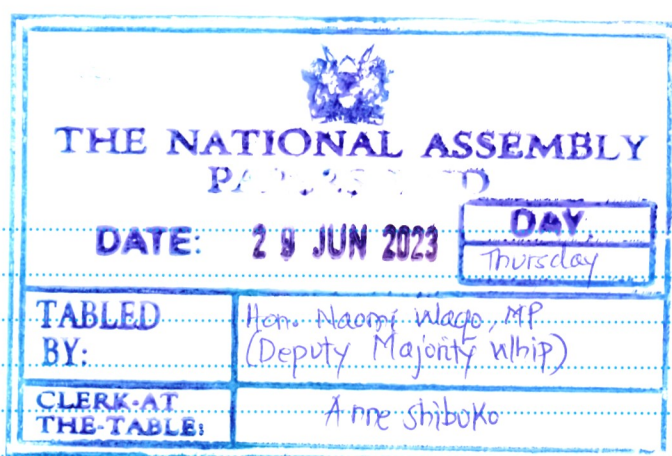 THE NATIONAL ASSEMBLY
DATE: 29 JUN 2023
DAY
Thursday
TABLED
BY:
Hon. Naomi Waqo, MP
(Deputy Majority Whip)
CLERK-AT
THE-TABLE:
Anne Shibuko